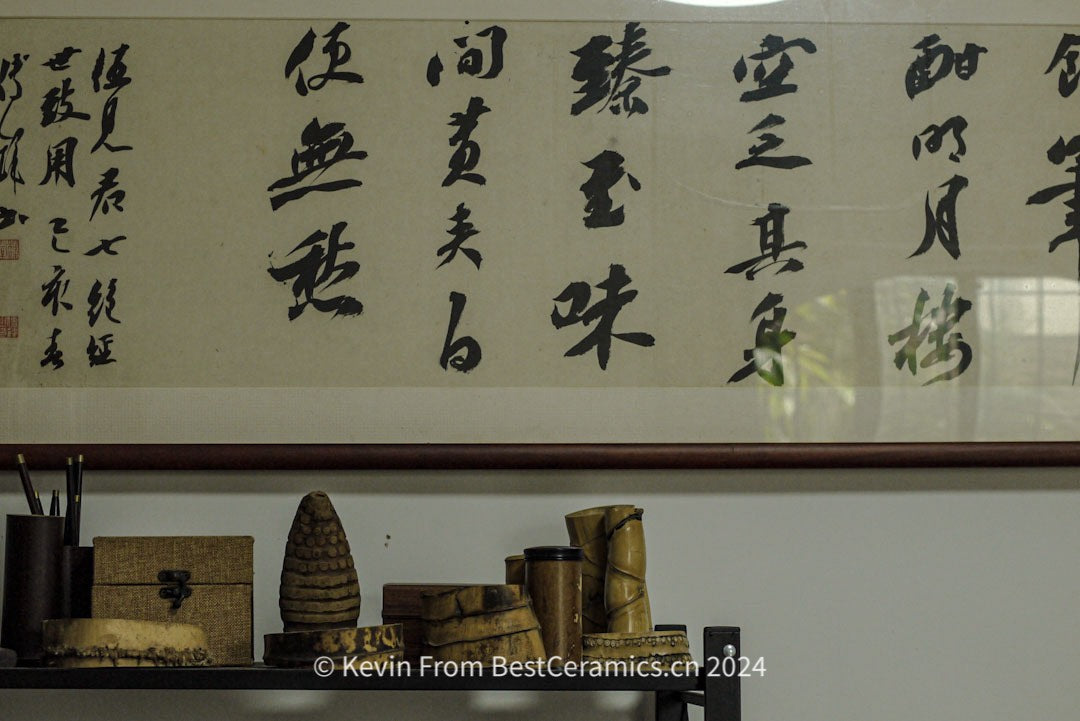 酣明月楼
空乏其身
臻至味
間黄白
便無愁
見君七絕經
世致用 己亥春
© Kevin From BestCeramics.cn 2024